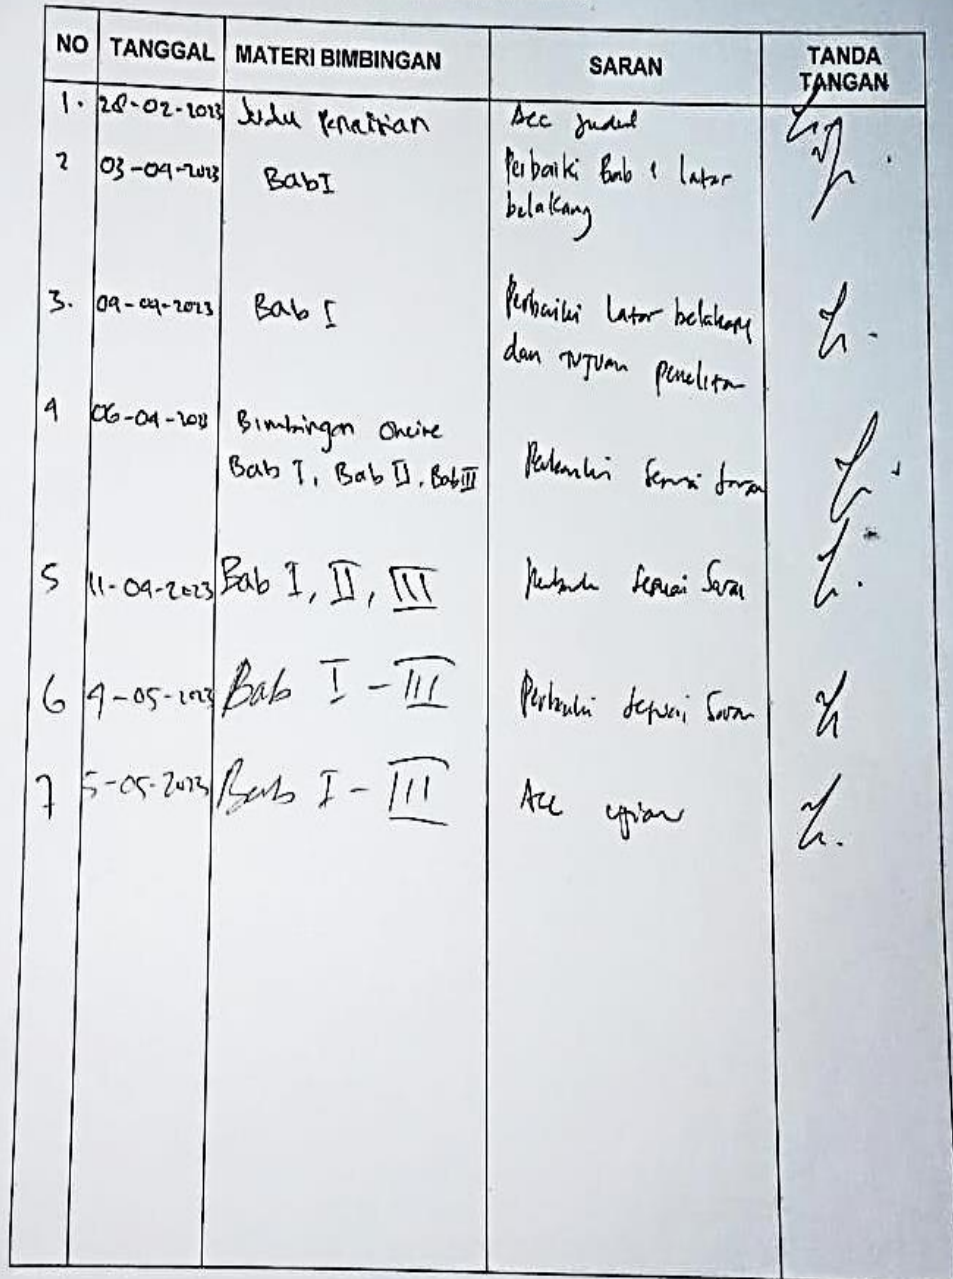 NO TANGGAL MATERI BIMBINGAN SARAN TANDA TANGAN
1. 28-02-2023 Judul Penelitian Acc judul
2 03-04-2023 Bab I Perbaiki Bab I latar
belakang
3. 04-04-2023 Bab I Perbaiki latar belakang
dan tujuan penelitian
4 06-04-2023 Bimbingan Online
Bab I, Bab II, Bab III Perbaiki sesuai saran
5 11-04-2023 Bab I, II, III Perbaiki sesuai saran
6 4-05-2023 Bab I - III Perbaiki sesuai saran
7 5-05-2023 Bab I - III Acc ujian